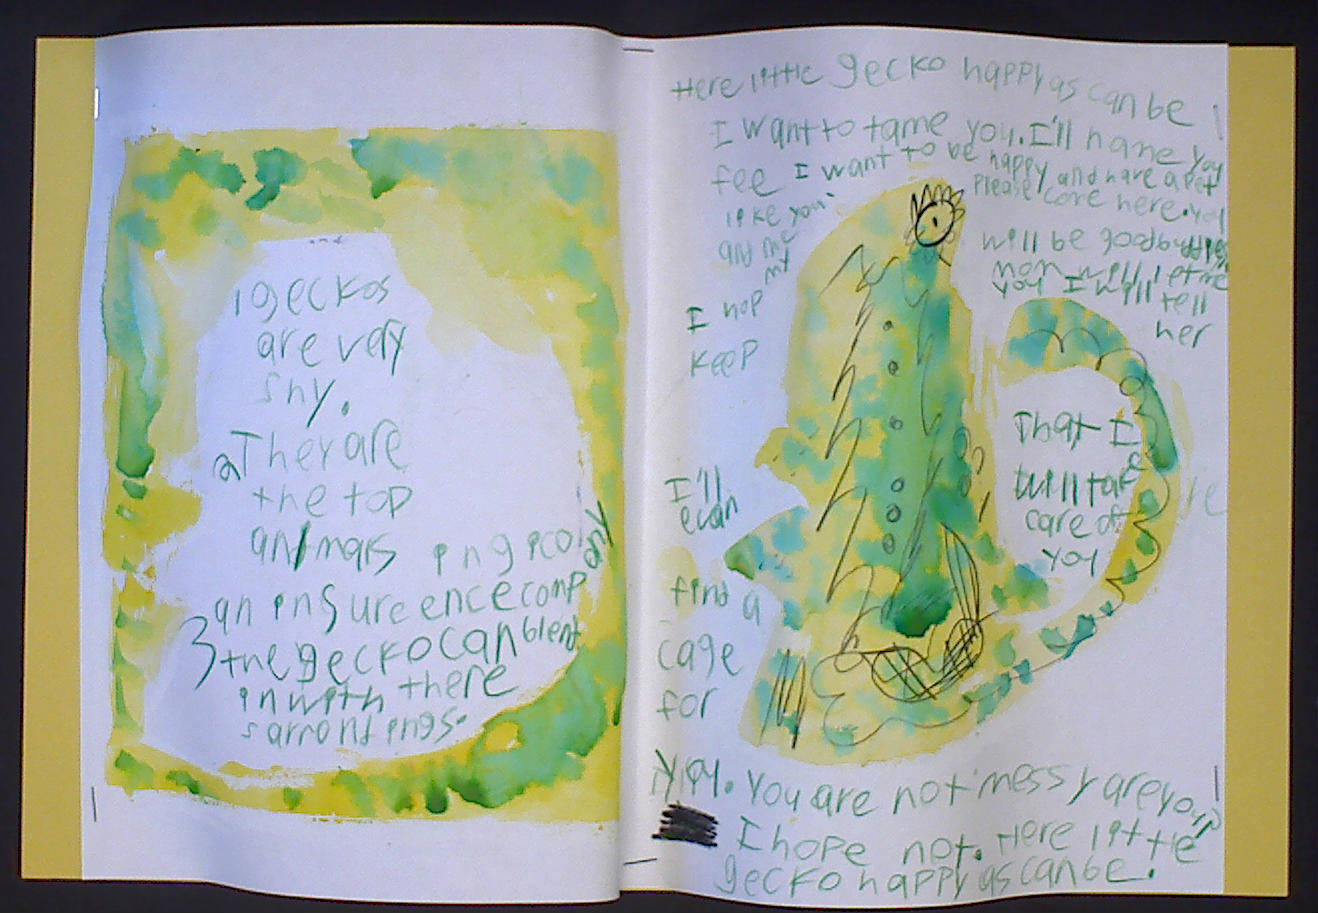 1 geckos
are very
shy.
2 They are
the top
animals in gico
an insureence company
3 the gecko can blent
in with there
sarrondings.
Here little gecko happy as can be
I want to tame you. I'll name you
fee I want to be happy and have a pet
like you. Please come here. you
and me will be good buddies
I hop my mom will let me
keep you I will tell
her
That I
will take
care of
you
I'll
evan
find a
cage
for
you. You are not messy are you?
I hope not. Here little
gecko happy as can be.